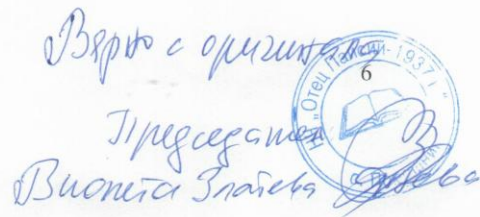 Вярно с оригинала
6
НЧ "Отец Паисий-1937 г."
Председател
Виолета Златева